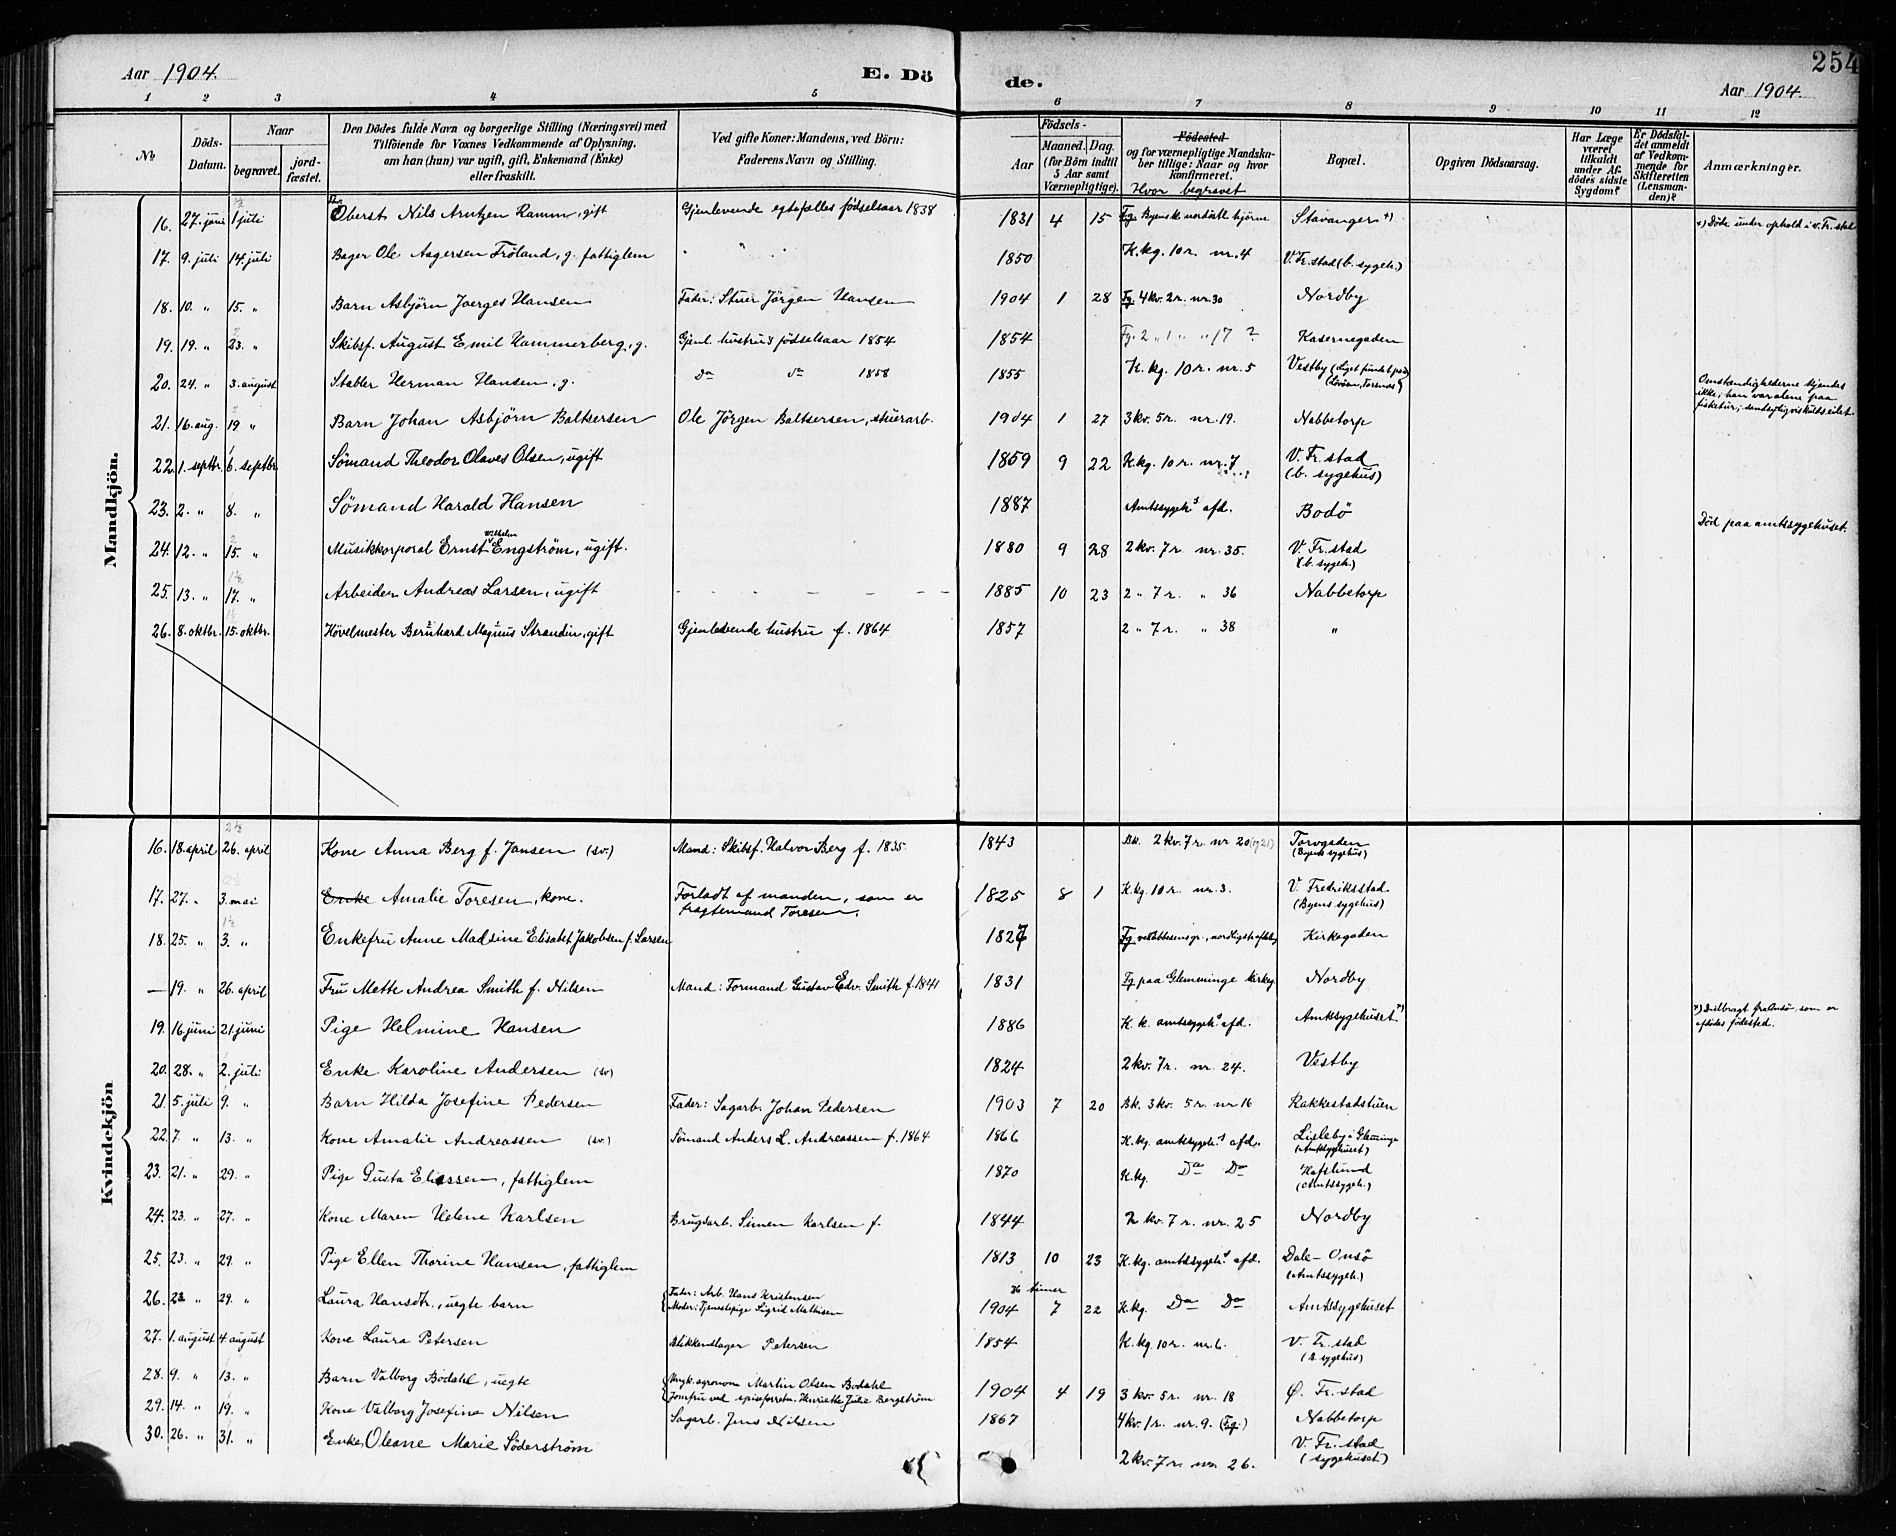 Aar 1904. E. Dö de. Aar 1904. 254
1 2 3 4 5 6 7 8 9 10 11 12
No Döds-Datum. Naar begravet. jordfæstet. Den Dödes fulde Navn og borgerlige Stilling (Næringsvei) med Tilföiende for Voxnes Vedkommende af Oplysning, om han (hun) var ugift, gift, Enkemand (Enke) eller fraskilt. Ved gifte Koner: Mandens, ved Börn: Faderens Navn og Stilling. Födsels- Aar Maaned. Dag. (for Börn indtil 5 Aar samt Værnepligtige). Födested og for værnepligtige Mandskaber tillige: Naar og hvor konfirmeret. Hvor begravet Bopæl. Opgiven Dödsaarsag. Har Læge været tilkaldt under Afdödes sidste Sygdom? Er Dödsfaldet anmeldt af Vedkommende for Skifteretten (Lensmanden)? Anmærkninger.
Mandkjön.
16. 27. juni 1 juli Oberst Nils Arntzen Ramm, gift Gjenlevende egtefælles födselsaar 1838 1831 4 15 Fg. Byens k. nordöstl hjörne Stavanger +) +) Döde under ophold i v. Fr.stad
17. 9. juli 14. juli Bager Ole Aagersen Fröland, g. fattiglem " " 1850 K. kg. 10 r. nr. 4 V. Fr.stad (b. sygeh.)
18. 10. " 15. " Barn Asbjörn Joerges Hansen Fader: Stuer Jörgen Hansen 1904 1 28 Fg. 4 kv. 2 r. nr. 30 Nordby
19. 19. " 23. " Skibsf. August Emil Hammerberg, g. Gjenl. hustrus födselsaar 1854 1854 Fg. 2 " 1 " " 17 ? Kasernegaden
20. 24. " 3. august Stabler Herman Hansen, g. Do do 1858 1855 K. kg. 10 r. nr. 5 Vestby (Liget fundet paa (Löven, Torsnæs) Omstændighederne kjendes ikke; han var alene paa fisketur; sandsynligvis kuldseilet.
21. 16. aug. 19 " Barn Johan Asbjörn Baltsersen Ole Jörgen Baltsersen, stuerarb. 1904 1 27 3 kv. 5 r. nr. 19. Nabbetorp
22. 1. septbr. 6. septbr. Sömand Theodor Olaves Olsen, ugift 1859 9 22 K. kg. 10 r. nr. 7 V. Fr. stad (b. sygehus)
23. 2. " 8. " Sömand Harald Hansen 1887 Amtssygeh.s afd. Bodö Död paa amtssygehuset.
24. 12. " 15. " Musikkorporal Ernst Wilhelm Engström, ugift. 1880 9 28 2 kv. 7 r. nr. 35. V. Fr. stad (b. sygeh.)
25. 13. " 17. " Arbeider Andreas Larsen, ugift - - - - - - 1885 10 23 2 " 7 r. " 36 Nabbetorp
26. 8. oktbr. 15. oktbr. Hövelmester Bernhard Magnus Strandin, gift Gjenlevende hustru f. 1864 1857 2 " 7 r. " 38 "
Kvindekjön
16. 18. april 26. april Kone Anna Berg f. Jansen (sv.) Mand: Skibsf. Halvor Berg f. 1835. 1843 Bk. 2 kv. 7 r. nr 20 (og 21) Torvgaden (Byens sygehus)
17. 27. " 3. mai Enke Amalie Toresen, kone. Forladt af manden, som er fragtemand Toresen. 1825 8 1 K. kg. 10 r. nr. 3. V. Fredriksstad (Byens sygehus)
18. 25. " 3. " Enkefru Anne Madsine Elisabet Jakobsen f. Larsen 1827 Fg. nordligste afdeling Kirkegaden
— 19. " 26. april Fru Mette Andrea Smith f. Nilsen Mand: Formand Gustav Edv. Smith f. 1841 1831 Fg. paa Glemminge kirkeg. Nordby
19. 16. juni 21. juni Pige Helmine Hansen 1886 K. k. amtssygeh.s afd. Amtssygehuset +) +) Indbragt fra Onsö, som er afdödes födested.
20. 28. " 2. juli Enke Karoline Andersen (sv) 1824 2 kv. 7 r. nr. 24. Vestby
21. 5. juli 9. " Barn Hilda Josefine Pedersen Fader: Sagarb. Johan Pedersen 1903 7 20 Bk. 3 kv. 5 r. nr 16 Rakkestadstuen
22. 7. " 13. " Kone Amalie Andreassen (sv.) Sömand Anders L. Andreassen f. 1864 1866 K. kg. amtssygeh.s afd. Lisleby i Glemminge (Amtssygehuset)
23. 21. " 29. " Pige Gusta Eliassen, fattiglem 1870 K. kg. Do Do Hafslund (Amtssygeh.)
24. 23. " 27. " Kone Maren Helene Karlsen Brugsarb. Simen Karlsen f. 1844 2 kv. 7 r. nr. 25 Nordby
25. 23. " 29. " Pige Ellen Thorine Hansen, fattiglem 1813 10 23 K. kg. amtssygeh.s afd. Dale – Onsö (Amtssygeh.)
26. 23 " 29. " Laura Hansdtr., uegte barn Fader: Arb. Hans Kristensen Moder: Tjenestepige Sigrid Mathisen timer 1904 7 22 K. kg. Do Do Amtssygehuset
27. 1. august 4. august Kone Laura Petersen Blikkenslager Petersen 1854 K. kg. 10 r. nr. 6. V. Fr. stad (B. sygehus)
28. 9. " 13. " Barn Valborg Bodahl, uegte Ungk. agronom Martin Olsen Bodahl Jomfru ved spiseforretn. Henriette Julie Bergström 1904 4 19 3 kv. 5 r. nr. 18 Ø. Fr. stad
29. 14. " 19. " Kone Valborg Josefine Nilsen Sagarb. Jens Nilsen 1867 4 kv. 1 r. nr. 9. (Fg.) Nabbetorp
30. 26. " 31. " Enke Oleane Marie Söderström 2 kv. 7 r. nr. 26. V. Fr. stad (sygehuset)